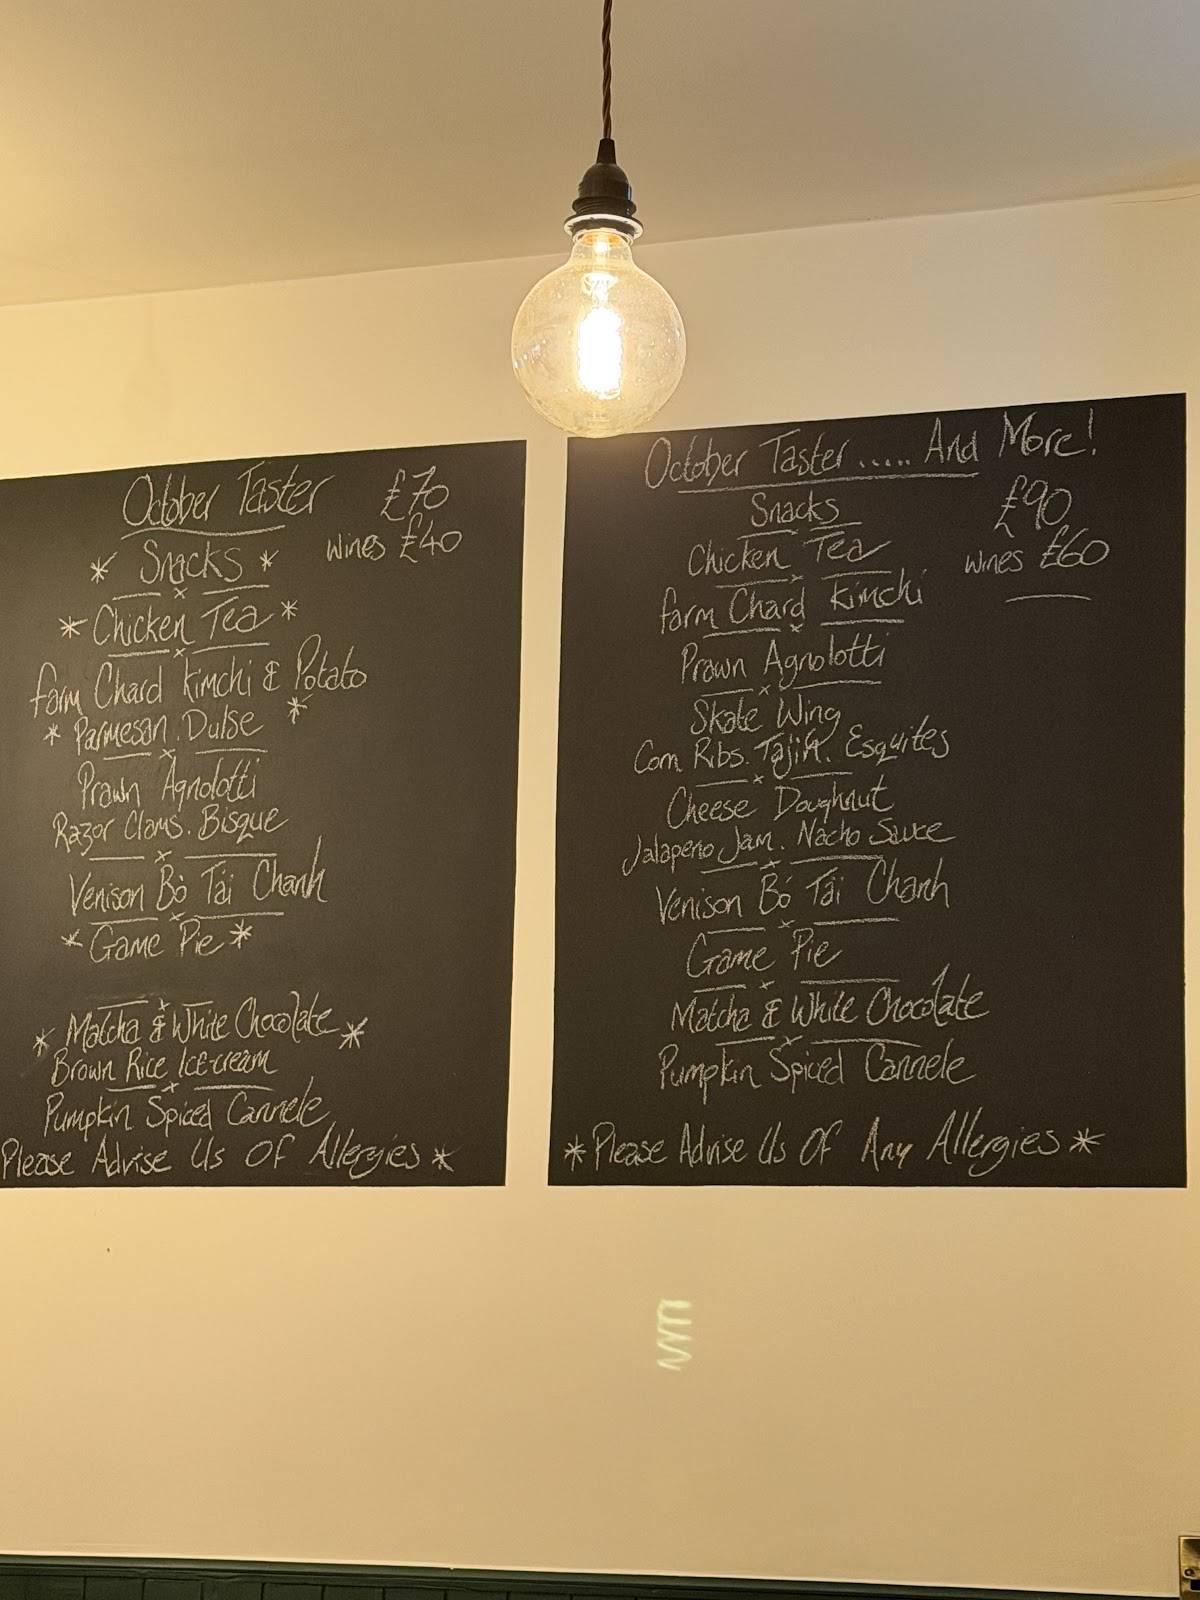 October Taster £70
wines £40
* Snacks *
* Chicken Tea *
Farm Chard Kimchi & Potato
* Parmesan . Dulse *
Prawn Agnolotti
Razor Clams . Bisque
Venison Bò Tái Chanh
* Game Pie *
* Matcha & White Chocolate *
Brown Rice Ice-cream
Pumpkin Spiced Cannele
Please Advise Us Of Allergies *
October Taster ..... And More!
Snacks £90
Chicken Tea wines £60
Farm Chard Kimchi
Prawn Agnolotti
Skate Wing
Corn Ribs. Tajin. Esquites
Cheese Doughnut
Jalapeno Jam. Nacho Sauce
Venison Bó Tái Chanh
Game Pie
Matcha & White Chocolate
Pumpkin Spiced Cannele
* Please Advise Us Of Any Allergies *